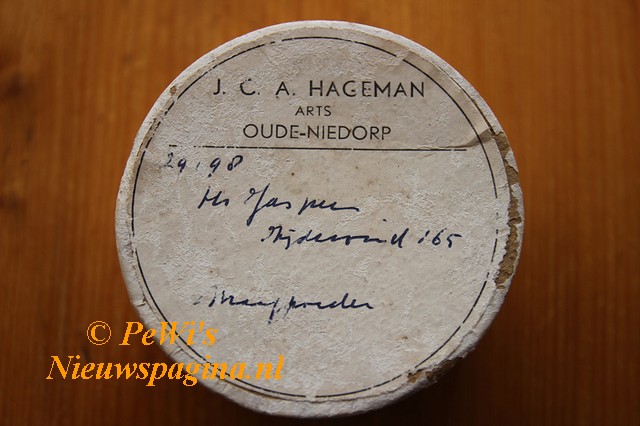 J. C. A. HAGEMAN
ARTS
OUDE-NIEDORP
29198
Hr Jasper
Zijdewind 165
Maagpoeder
© PeWi's
Nieuwspagina.nl